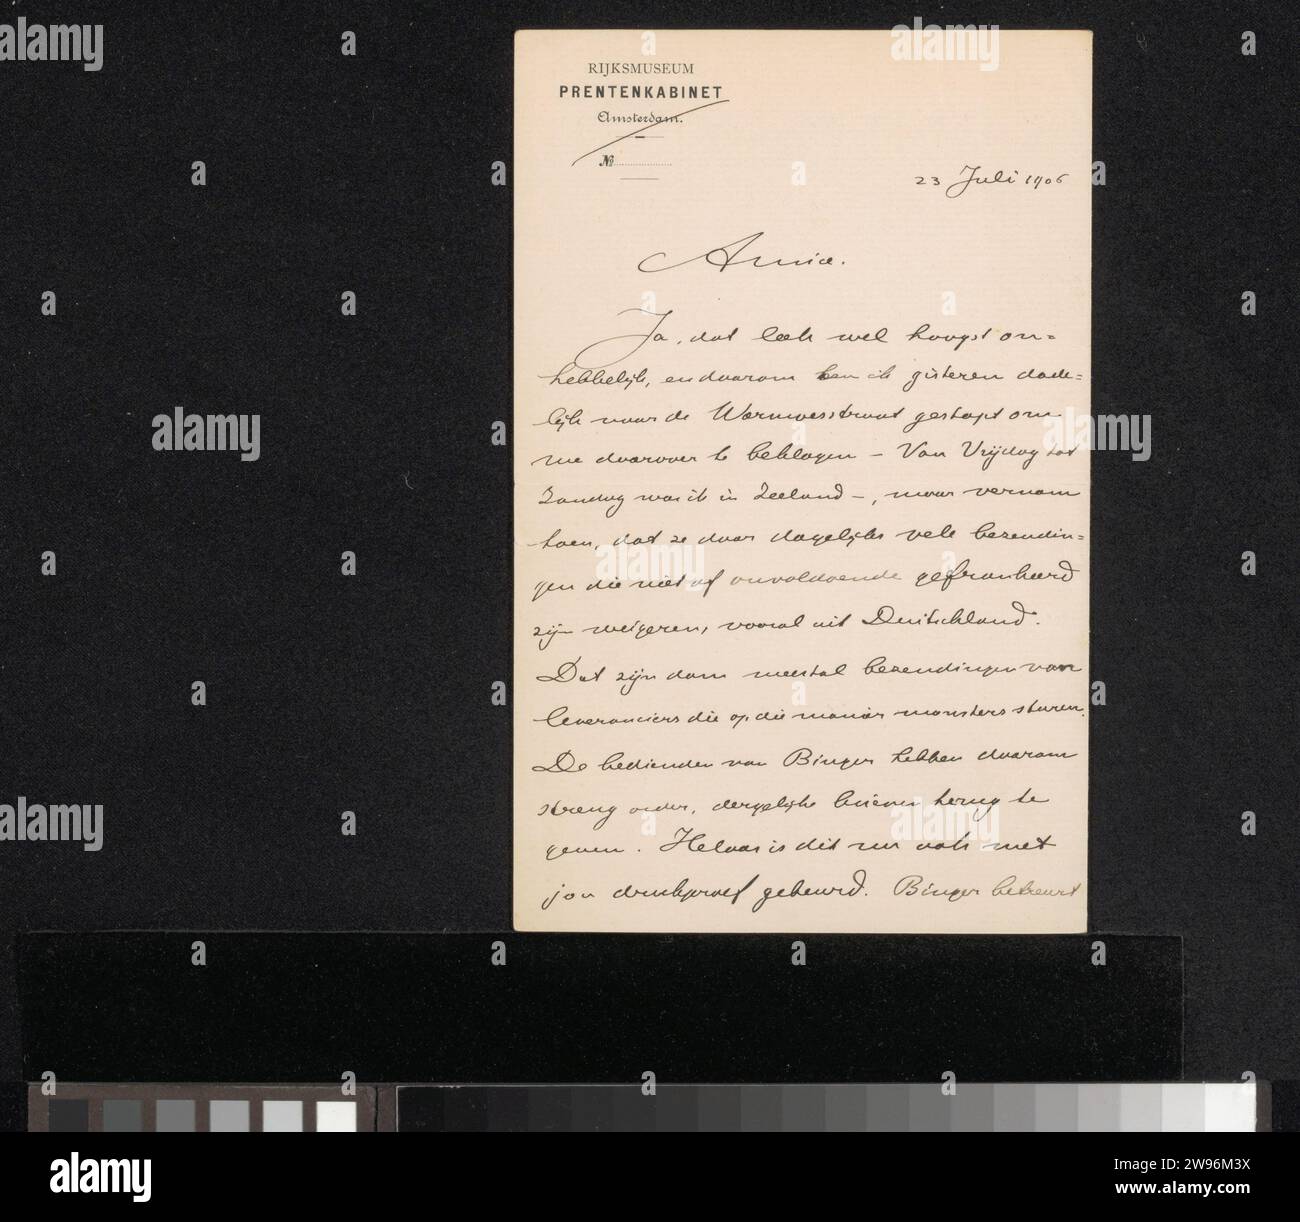 RIJKSMUSEUM
PRENTENKABINET
Amsterdam.
№
23 Juli 1906
Amice.
Ja, dat leek wel hoogst on=
hebbelijk, en daarom ben ik gisteren dade=
lijk naar de Warmoesstraat gestapt om
me daarover te beklagen – Van Vrijdag tot
Zondag was ik in Zeeland –, maar vernam
toen, dat ze daar dagelijks vele bezendin=
gen die niet of onvoldoende gefrankeerd
zijn weigeren, vooral uit Duitschland.
Dat zijn dan meestal bezendingen van
leveranciers die op die manier monsters sturen.
De bedienden van Binger hebben daarom
streng order, dergelijke brieven terug te
geven. Helaas is dit nu ook met
jou drukproef gebeurd. Binger betreurt
alamy
Image ID: 2W96M3X
www.alamy.com